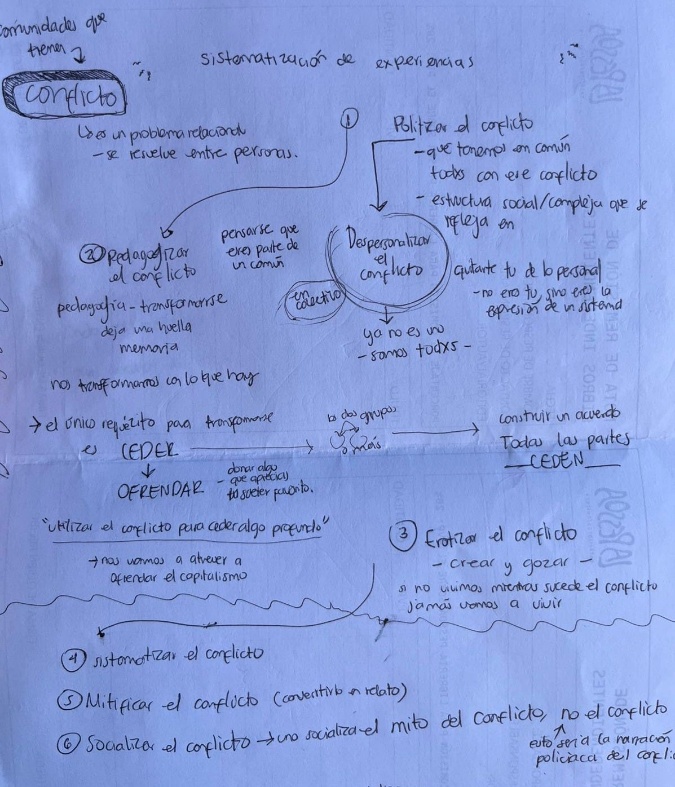 comunidades que
tienen
CONFLICTO
sistematización de experiencias
↳ es un problema relacional
- se resuelve entre personas.
①
Politzar el conflicto
- que tenemos en común
todxs con ese conflicto
- estructura social/compleja que se
refleja en
Despersonalizar
el
conflicto
en
colectivo
quitarte tu de lo personal
- no eres tu, sino eres la
expresión de un sistema
ya no es uno
- somos todxs -
② Pedagogizar
el conflicto
pensarse que
eres parte de
un común
pedagogía - transformarse
deja una huella
memoria
nos transformamos con lo que hay
→ el único requizito para transformarse
es CEDER
OFRENDAR
- donar algo
que aprecias
tu sueter favorito.
lo dos grupos
o más
construir un acuerdo
Todas las partes
CEDEN
"utilizar el conflicto para ceder algo profundo"
→ nos vamos a atrever a
ofrendar el capitalismo
③ Erotizar el conflicto
- crear y gozar -
si no vivimos mientras sucede el conflicto
jamás vamos a vivir
④ sistematizar el conflicto
⑤ Mitificar el conflicto (convertirlo en relato)
⑥ Socializar el conflicto → uno socializa el mito del conflicto, no el conflicto
esto sería la narración
policiaca del